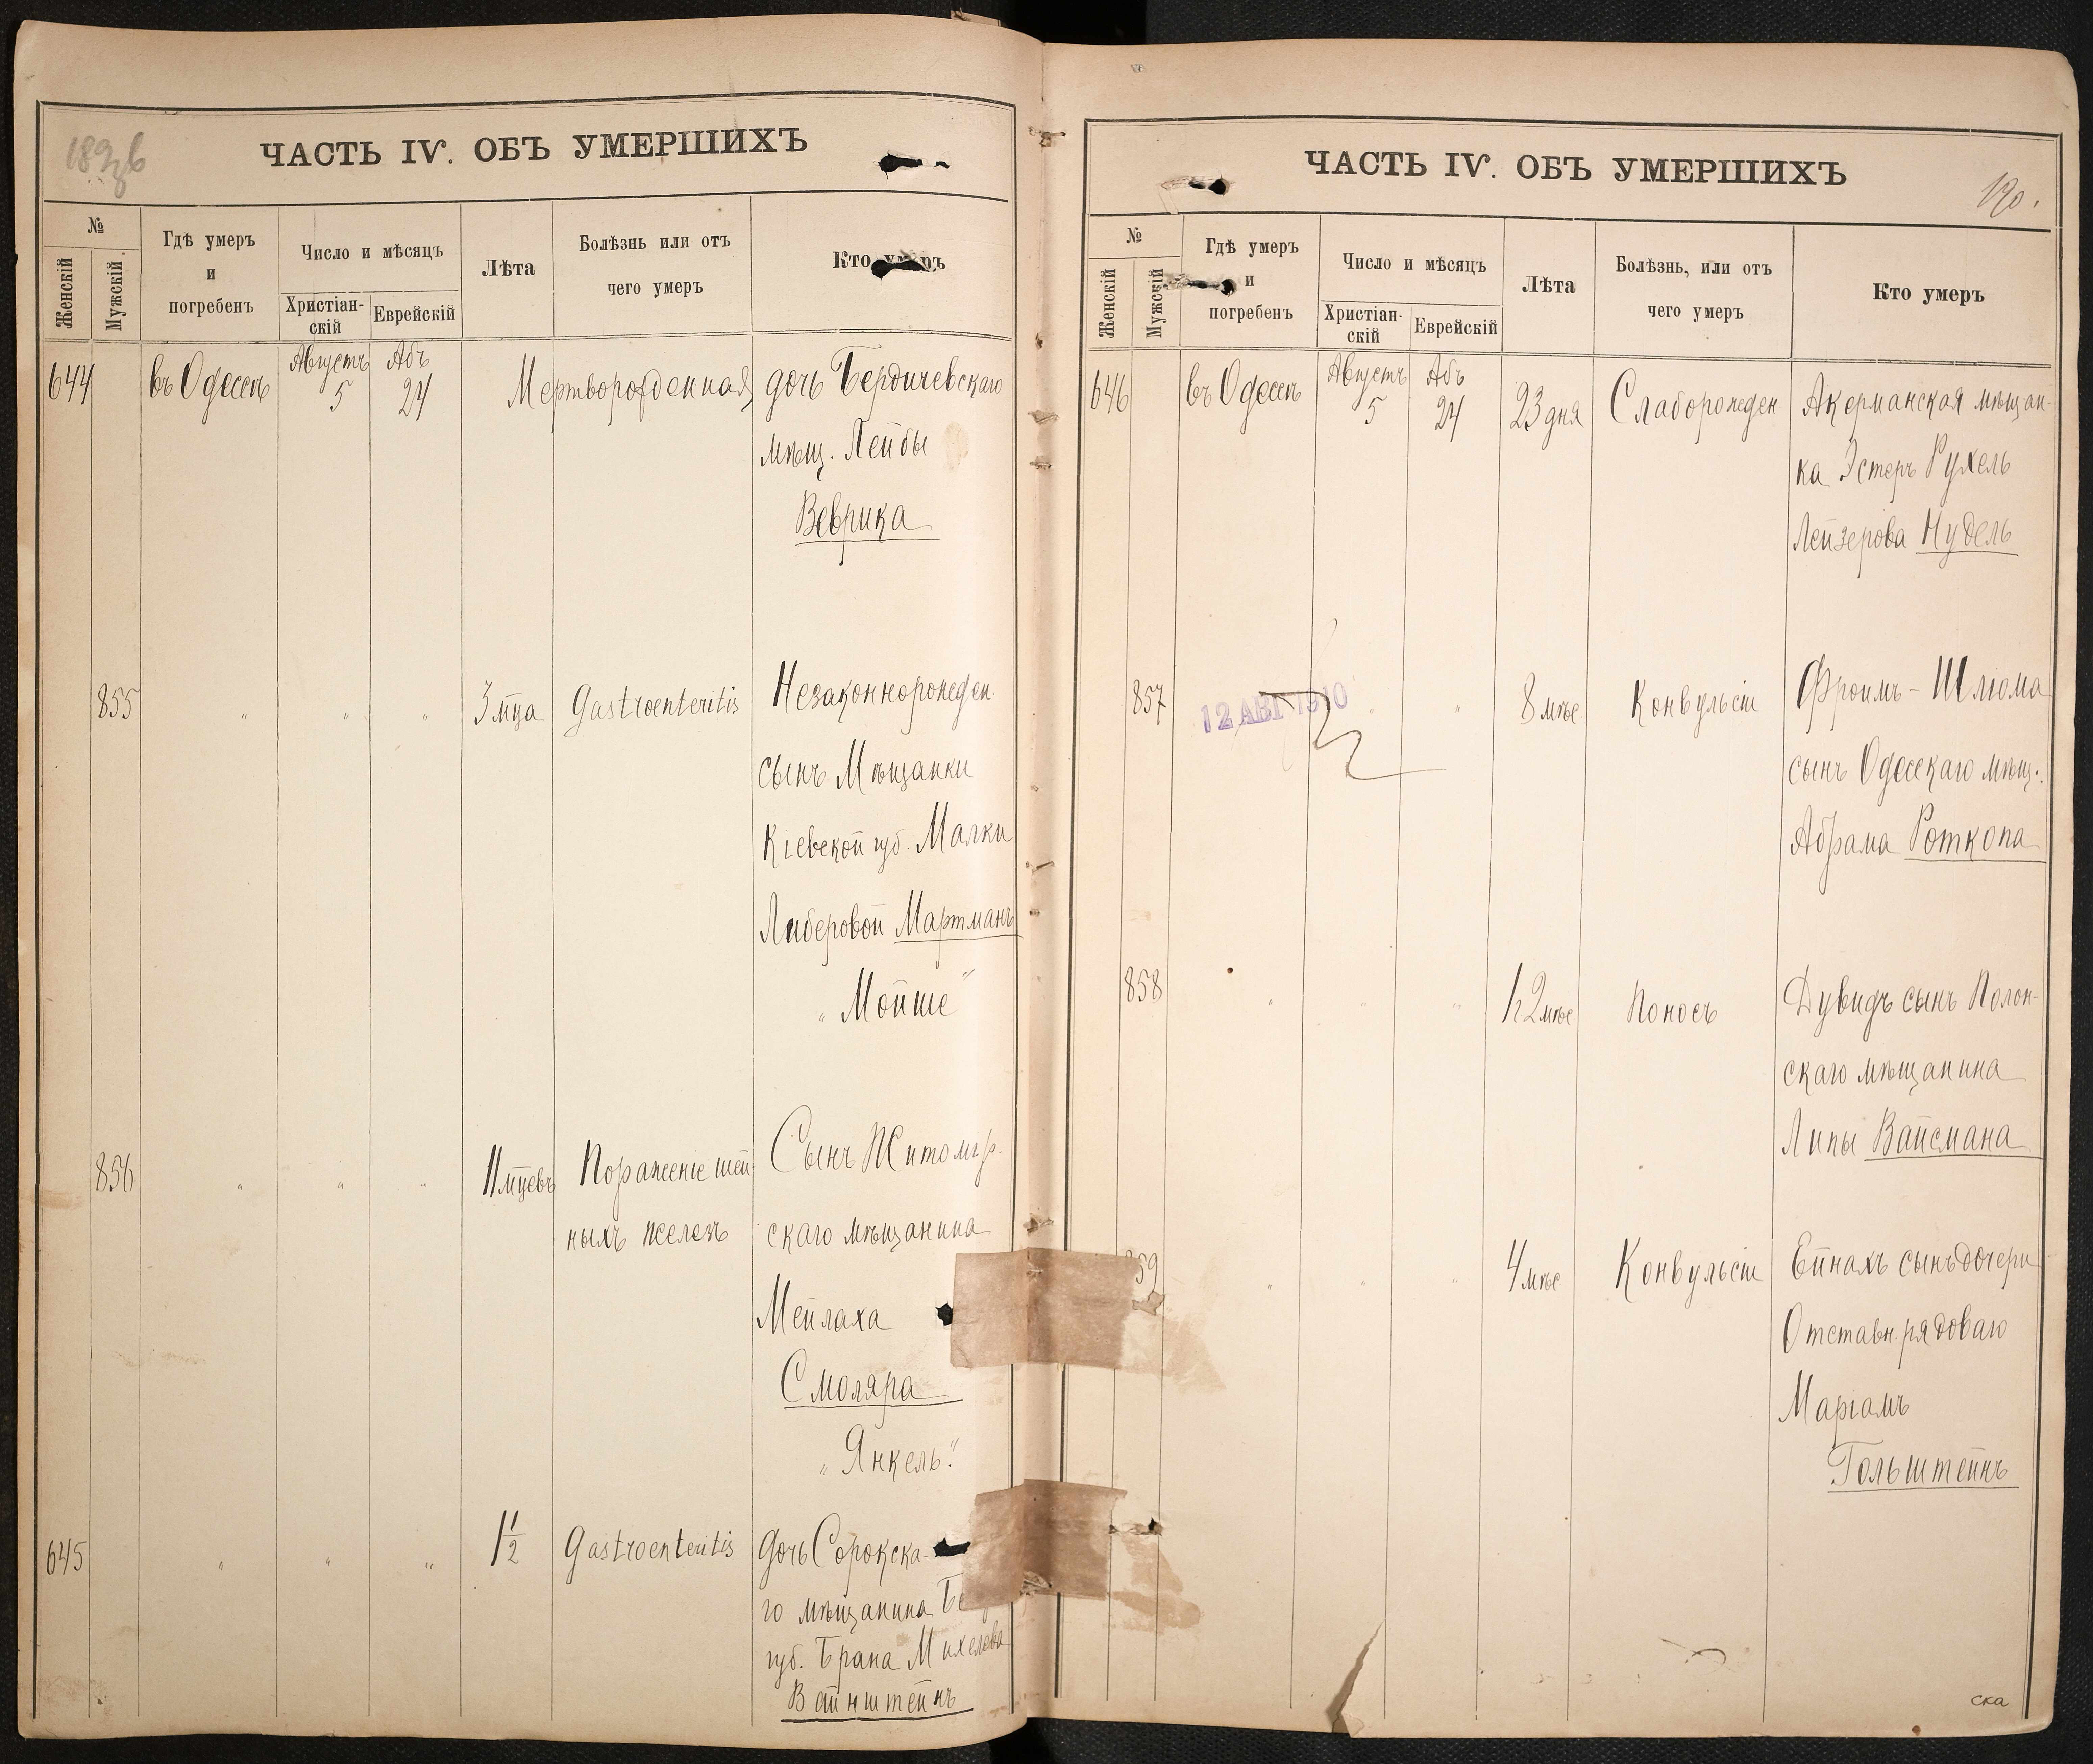 1896
ЧАСТЬ IV. ОБЪ УМЕРШИХЪ
№
Женскій
Мужскій
Гдѣ умеръ
и
погребенъ
Число и мѣсяцъ
Христіан-
скій
Еврейскій
Лѣта
Болѣзнь или отъ
чего умеръ
Кто умеръ
644
въ Одессѣ
Августъ
5
Абъ
24
Мертворожденная
дочь Бердичевскаго
мѣщ. Лейбы
Веврика
855
" " "
3 мца
Gastroenteritis
Незаконнорожден.
сынъ Мѣщанки
Кіевской губ. Малки
Либеровой Мартманъ
"Мойше"
856
" " "
11 мцевъ
Пораженіе шей-
ныхъ железъ
Сынъ Житомір-
скаго мѣщанина
Мейлаха
Смоляра
"Янкель".
645
" " "
1 1/2
Gastroenteritis
дочь Сорокска-
го мѣщанина
губ. Брана Михелева
Вайнштейнъ
ЧАСТЬ IV. ОБЪ УМЕРШИХЪ
190.
№
Женскій
Мужскій
Гдѣ умеръ
и
погребенъ
Число и мѣсяцъ
Христіан-
скій
Еврейскій
Лѣта
Болѣзнь, или отъ
чего умеръ
Кто умеръ
646
въ Одессѣ
Августъ
5
Абъ
24
23 дня
Слаборожден.
Акерманская мѣщан-
ка Эстеръ Рухель
Лейзерова Нудель
857
12 АВГ 1910
" "
8 мѣс
Конвульсіи
Фроимъ-Шлюма
сынъ Одесскаго мѣщ.
Абрама Роткопа
858
" " "
12 мѣс
Поносъ
Дувидъ сынъ Полон-
скаго мѣщанина
Липы Вайсмана
59
" " "
4 мѣс
Конвульсіи
Ейнахъ сынъ дочери
Отставн. рядоваго
Маріамъ
Гольштейнъ
ска